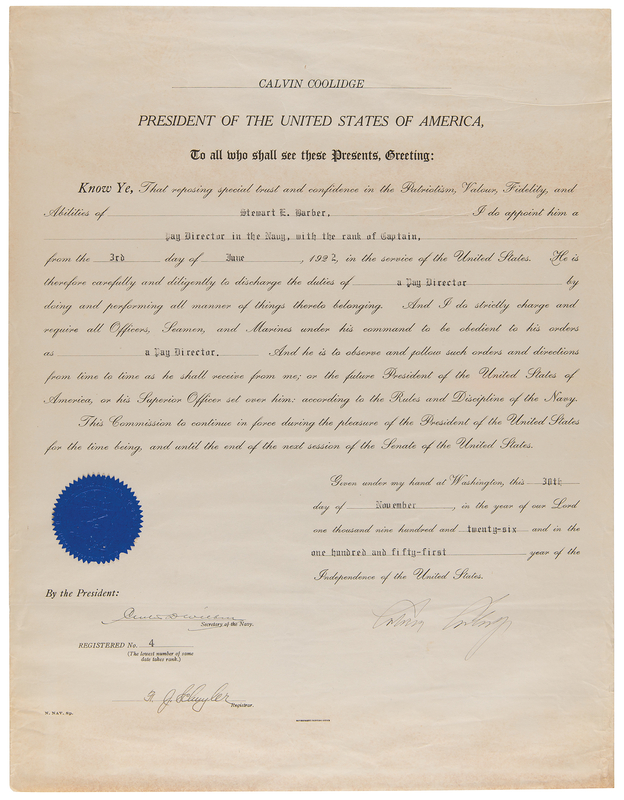 CALVIN COOLIDGE
PRESIDENT OF THE UNITED STATES OF AMERICA,
To all who shall see these Presents, Greeting:
Know Ye, That reposing special trust and confidence in the Patriotism, Valour, Fidelity, and
Abilities of Stewart E. Barber, I do appoint him a
Pay Director in the Navy, with the rank of Captain,
from the 3rd day of June, 1922, in the service of the United States. He is
therefore carefully and diligently to discharge the duties of a Pay Director by
doing and performing all manner of things thereto belonging. And I do strictly charge and
require all Officers, Seamen, and Marines under his command to be obedient to his orders
as a Pay Director. And he is to observe and follow such orders and directions
from time to time as he shall receive from me; or the future President of the United States of
America, or his Superior Officer set over him: according to the Rules and Discipline of the Navy.
This Commission to continue in force during the pleasure of the President of the United States
for the time being, and until the end of the next session of the Senate of the United States.
Given under my hand at Washington, this 30th
day of November, in the year of our Lord
one thousand nine hundred and twenty-six and in the
one hundred and fifty-first year of the
Independence of the United States.
By the President:
Calvin Coolidge
Curtis D Wilbur
Secretary of the Navy.
REGISTERED No. 4
(The lowest number of same
date takes rank.)
Schuyler
Registrar.
N. NAV. 89.